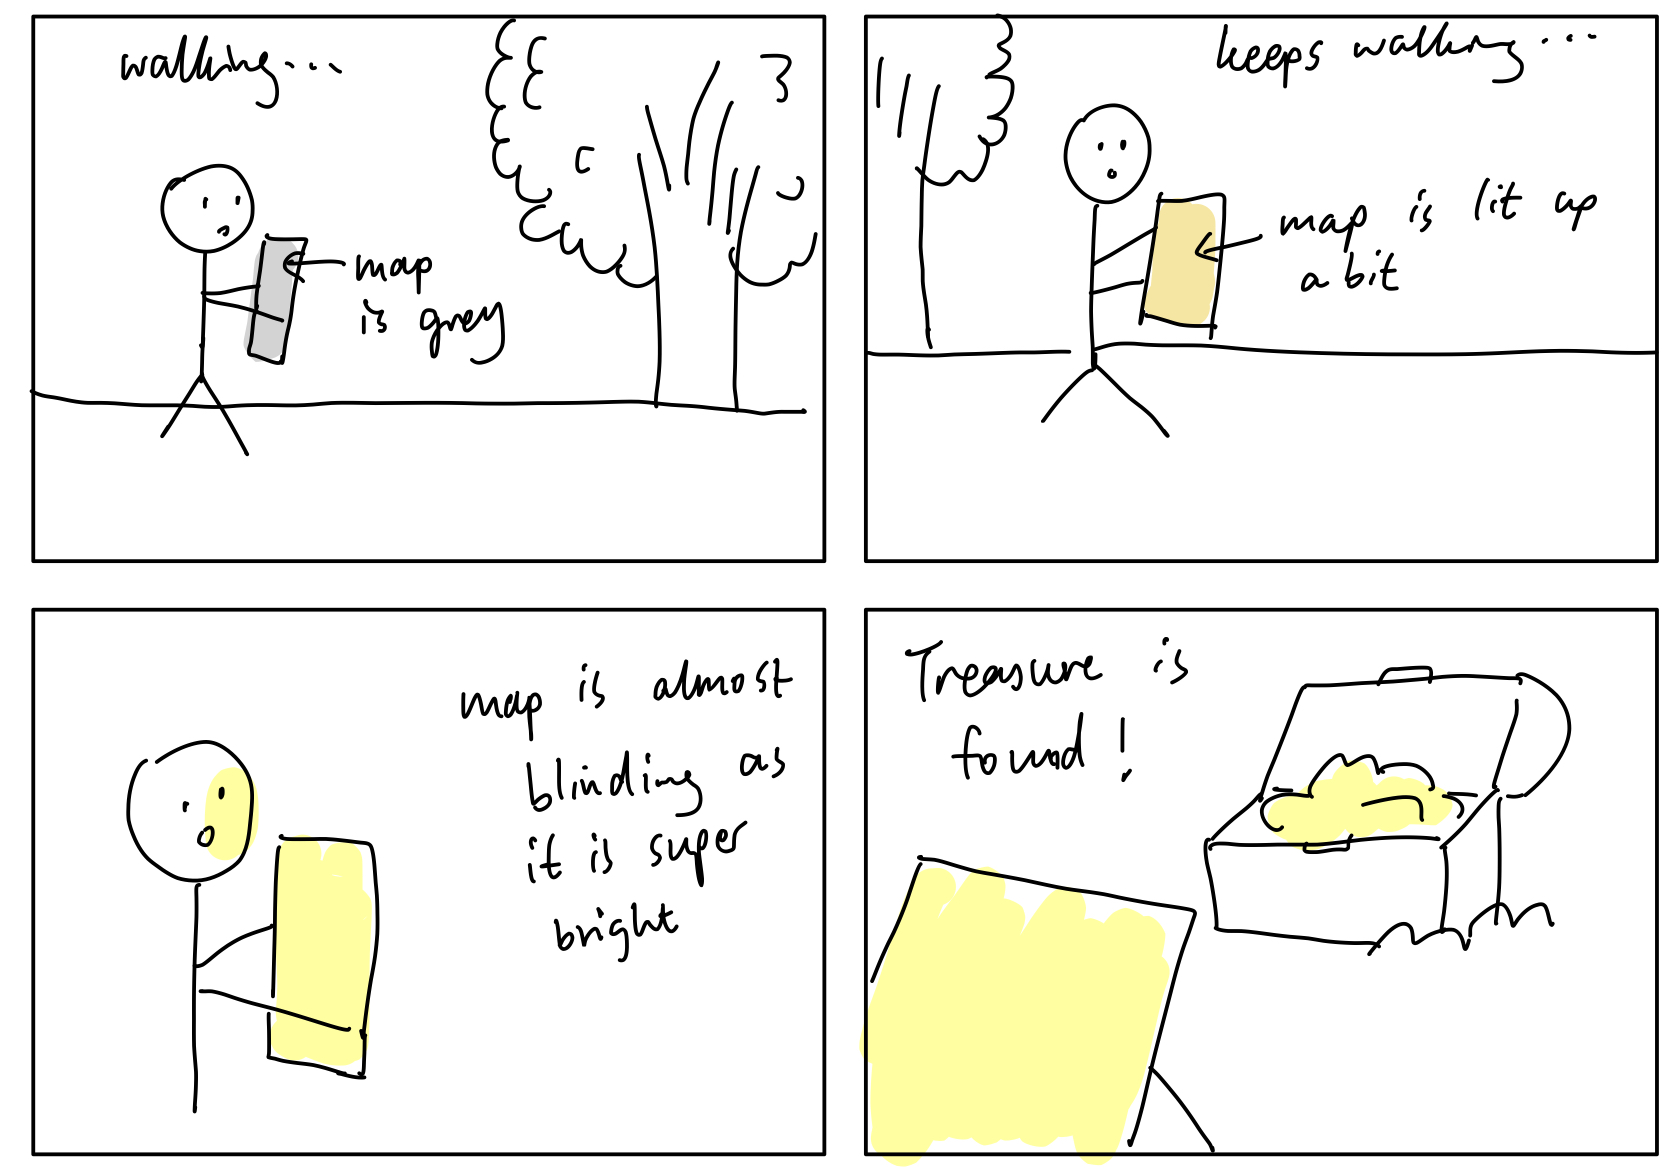 walking...
map
is grey
keeps walking...
map is lit up
a bit
map is almost
blinding as
it is super
bright
Treasure is
found!